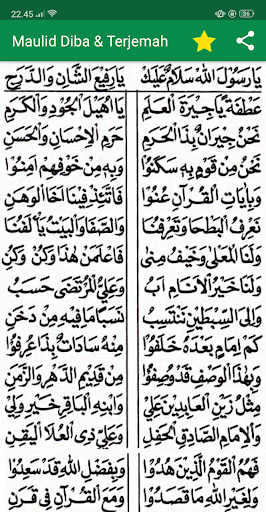 22.45
Maulid Diba & Terjemah
يَارَسُولَ اللهِ سَلَامٌ عَلَيْكَ يَارَفِيعَ الشَّانِ وَالدَّرَجِ
عَطْفَةً يَاجِيرَةَ الْعَلَمِ يَا اُهَيْلَ الْجُودِ وَالْكَرَمِ
نَحْنُ جِيرَانٌ بِذَا الْحَرَمِ حَرَمِ الْاِحْسَانِ وَالْحَسَنِ
نَحْنُ مِنْ قَوْمٍ بِهِ سَكَنُوا وَبِهِ مِنْ خَوْفِهِمْ اَمِنُوا
وَبِاٰيَاتِ الْقُرْاٰنِ عُنُوا فَاتَّئِدْ فِينَا اَخَا الْوَهَنِ
نَعْرِفُ الْبَطْحَا وَتَعْرِفُنَا وَالصَّفَا وَالْبَيْتُ يَأْلَفُنَا
وَلَنَا الْمَعْلٰى وَخَيْفُ مِنٰى فَاعْلَمَنْ هٰذَا وَكُنْ وَكُنِ
وَلَنَا خَيْرُ الْاَنَامِ اَبُ وَعَلِيُّ الْمُرْتَضٰى حَسَبُ
وَاِلَى السِّبْطَيْنِ نَنْتَسِبُ نَسَبًا مَافِيهِ مِنْ دَخَنِ
كَمْ اِمَامٍ بَعْدَهُ خَلَفُوا مِنْهُ سَادَاتٌ بِذَا عُرِفُوا
وَبِهٰذَا الْوَصْفِ قَدْ وُصِفُوا مِنْ قَدِيمِ الدَّهْرِ وَالزَّمَنِ
مِثْلُ زَيْنِ الْعَابِدِينَ عَلِي وَابْنِهِ الْبَاقِرِ خَيْرِ وَلِي
وَالْاِمَامِ الصَّادِقِ الْحَفِلِ وَعَلِيٍّ ذِى الْعُلَا الْيَقِنِ
فَهُمُ الْقَوْمُ الَّذِينَ هُدُوا وَبِفَضْلِ اللهِ قَدْ سَعِدُوا
وَلِغَيْرِ اللهِ مَا قَصَدُوا وَمَعَ الْقُرْاٰنِ فِي قَرَنِ